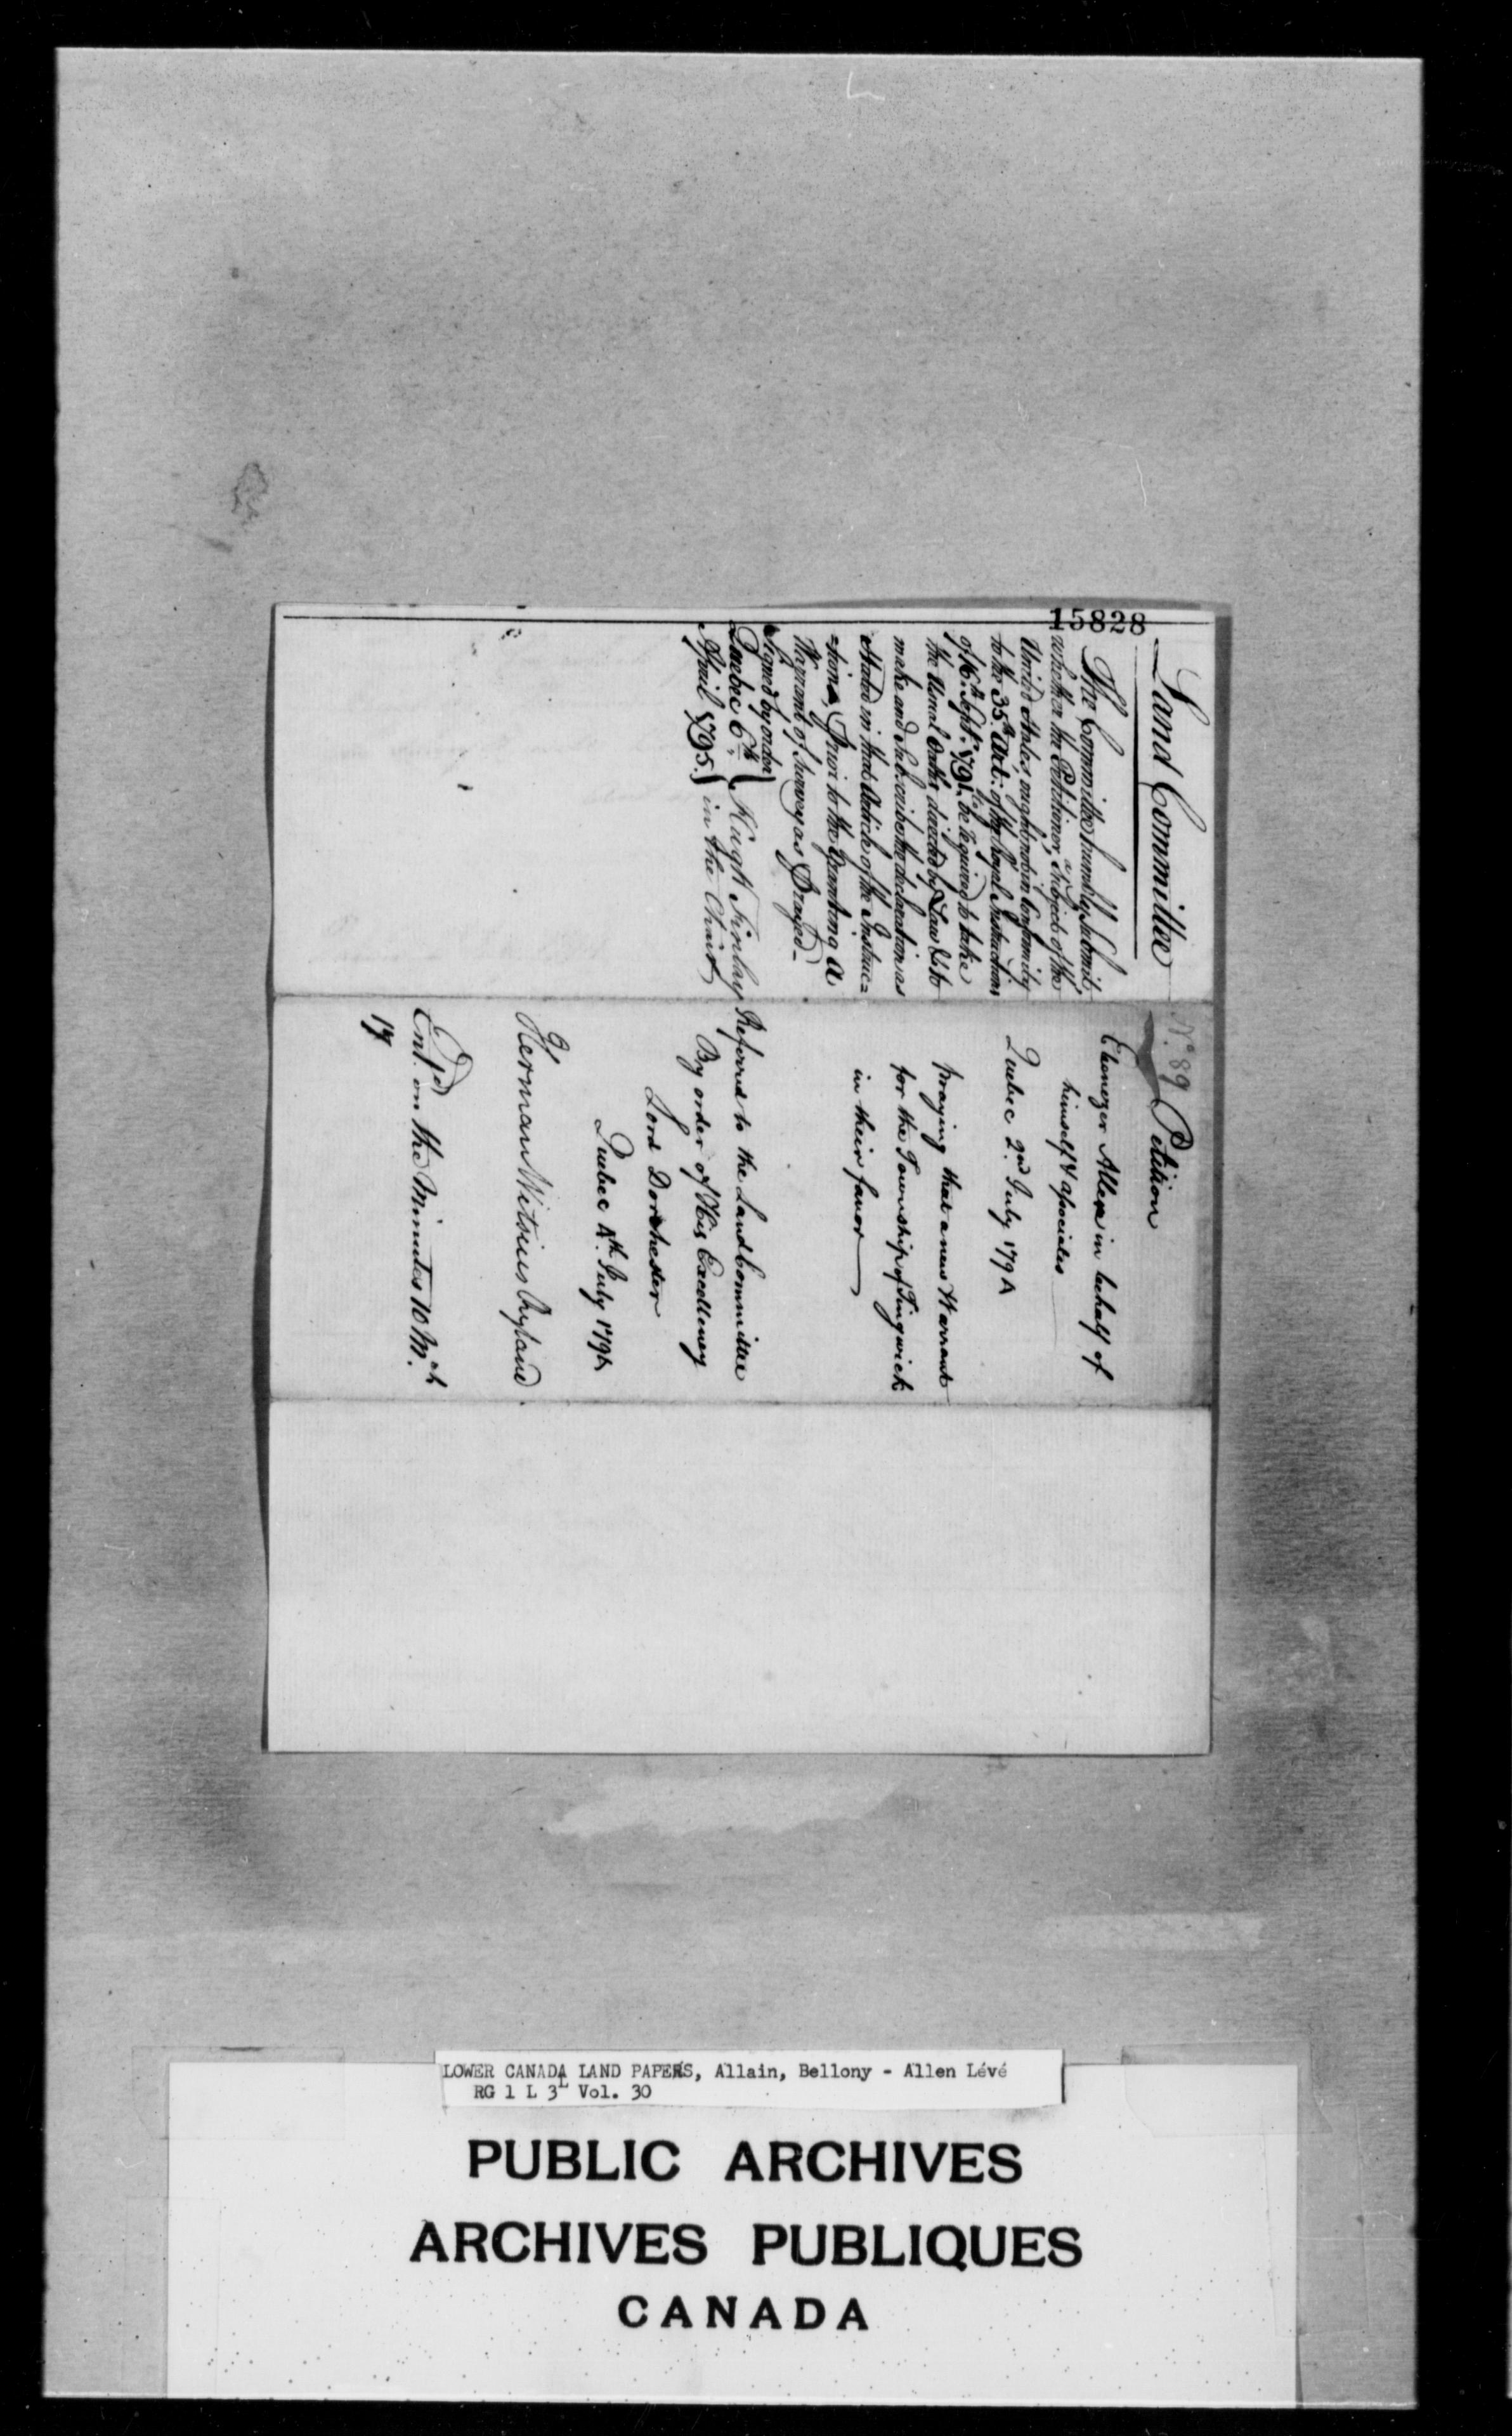 15828
Land Committee
The Committee humbly Submit
whether the Petitioner, a Subject of the
United States, ought not in Conformity
to the 35th Art: of the Royal Instructions
of 16th Septr. 1791. be required to take
the Usual Oaths directed by Law & to
make and Subscribe the declaration as
Stated in that Article of the Instruc=
=tions, Prior to the Granting a
Warrant of Survey as Prayed_
Signed by order
Quebec 6th
April 1795.
Hugh Finlay
in the Chair
No. 89 Petition
Ebenezer Allen in behalf of
himself & associates
Quebec 2nd July 1794
praying that a new Warrant
for the Township of Tingwick
in their favor
Referred to the Land Committee
By order of His Excellency
Lord Dorchester
Quebec 4th July 1794
Herman Witsius Ryland.
Entd. on the Minutes 10 M
LOWER CANADA LAND PAPERS, Allain, Bellony - Allen Lévé
RG 1 L 3L Vol. 30
PUBLIC ARCHIVES
ARCHIVES PUBLIQUES
CANADA